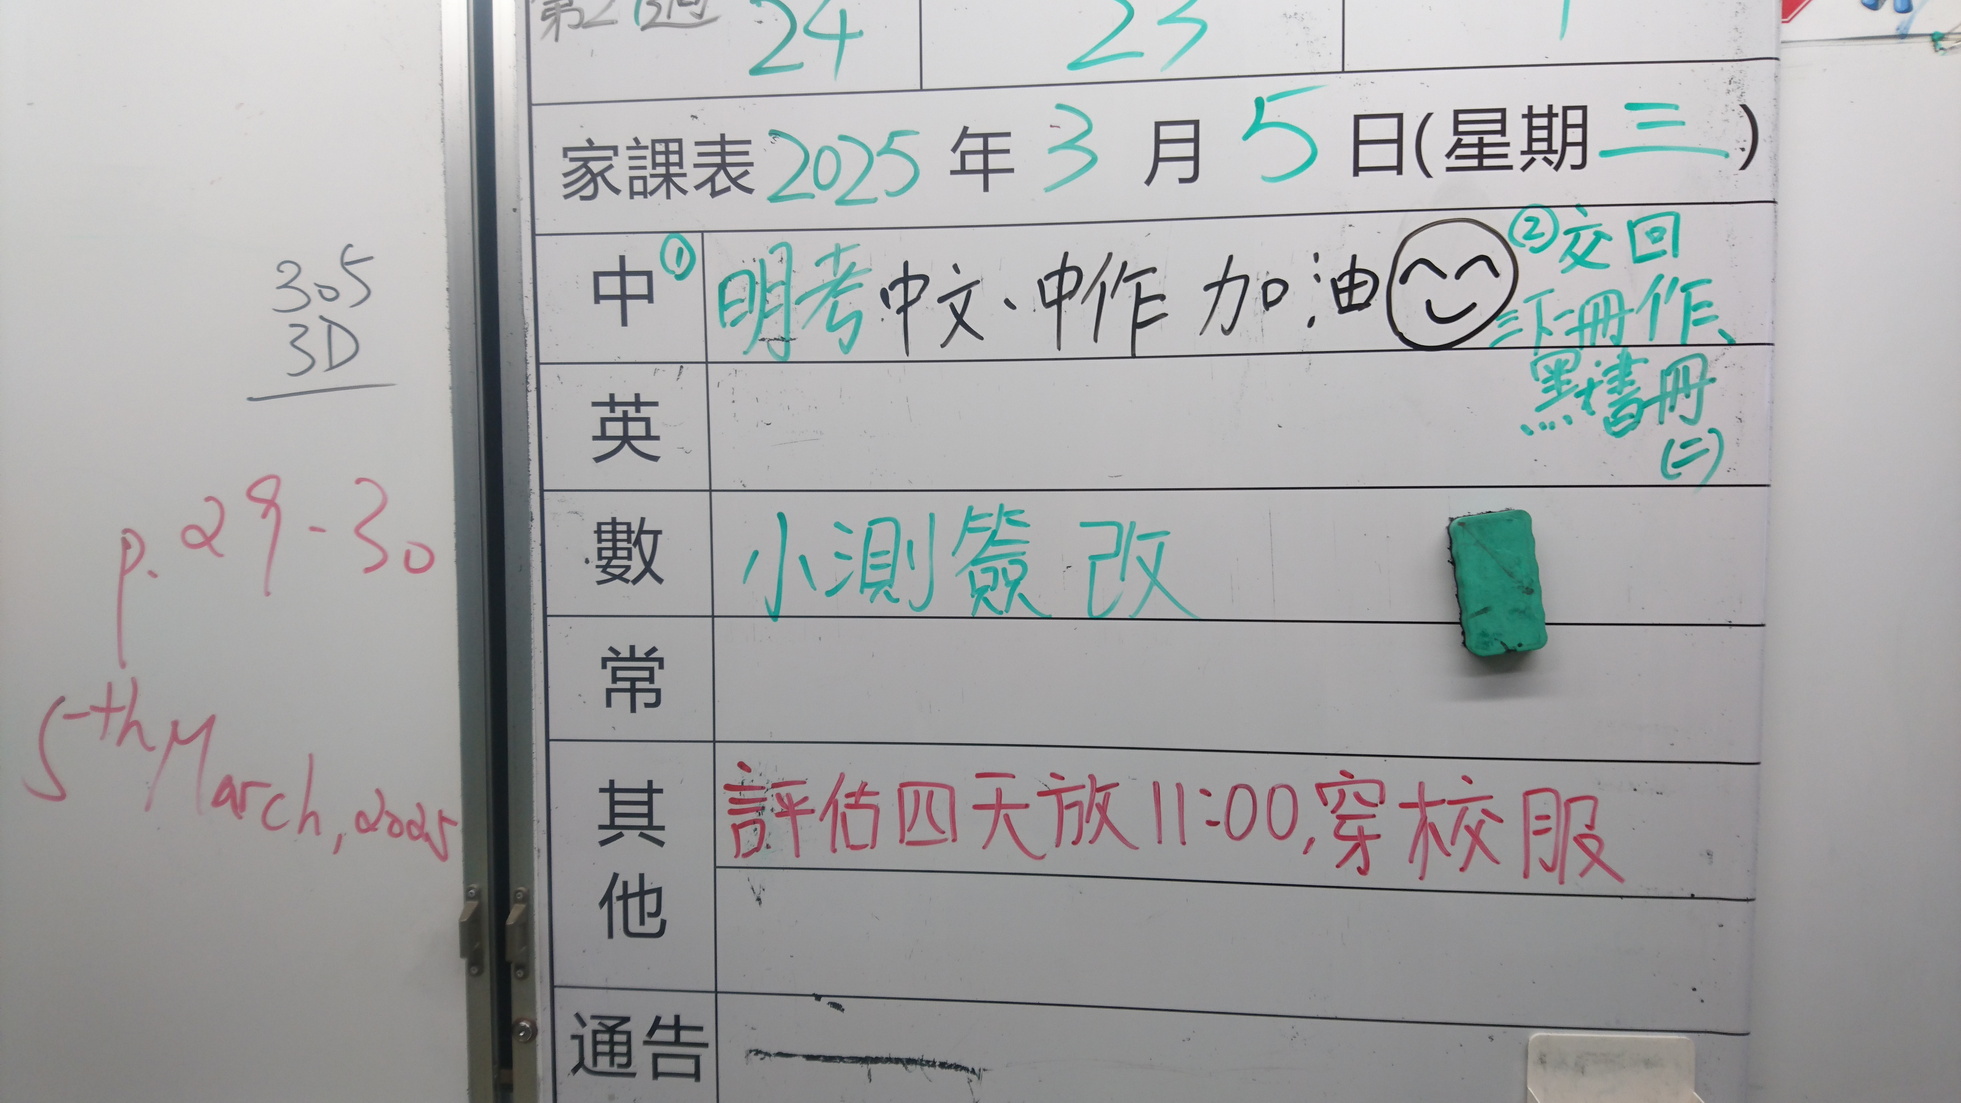 第2週 24 23 1
家課表 2025 年 3 月 5 日(星期 三 )
中 ① 明考中文、中作 加油
②交回
三下冊作、
默書冊
(二)
英
數 小測簽改
常
其他 評估四天放11:00,穿校服
通告
305
3D
p.29-30
5th March, 2025